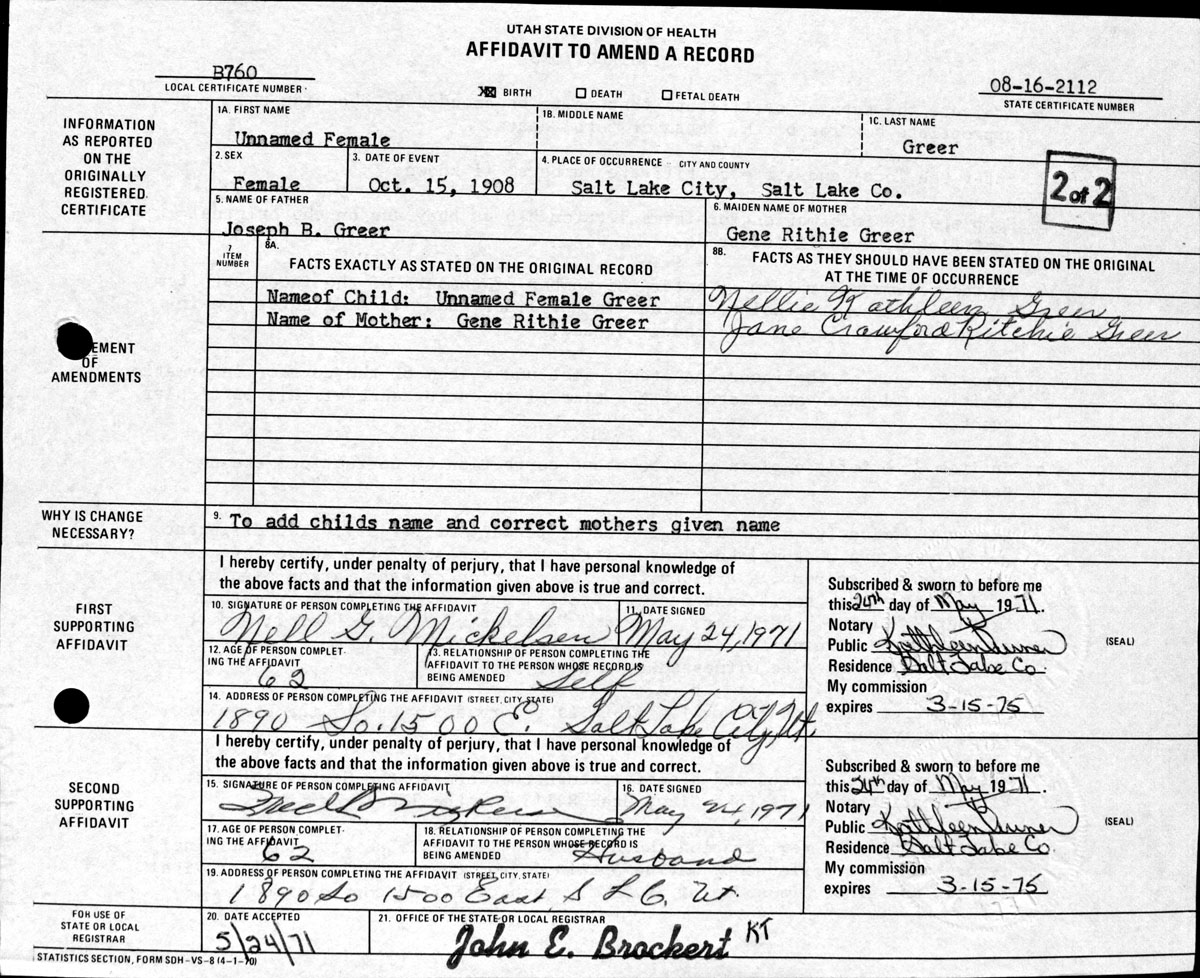 UTAH STATE DIVISION OF HEALTH
AFFIDAVIT TO AMEND A RECORD
B760
LOCAL CERTIFICATE NUMBER
BIRTH DEATH FETAL DEATH
08-16-2112
STATE CERTIFICATE NUMBER
INFORMATION AS REPORTED ON THE ORIGINALLY REGISTERED CERTIFICATE
1A. FIRST NAME
Unnamed Female
1B. MIDDLE NAME
1C. LAST NAME
Greer
2. SEX
Female
3. DATE OF EVENT
Oct. 15, 1908
4. PLACE OF OCCURRENCE - CITY AND COUNTY
Salt Lake City, Salt Lake Co.
2 of 2
5. NAME OF FATHER
Joseph B. Greer
6. MAIDEN NAME OF MOTHER
Gene Rithie Greer
OF AMENDMENTS
7 ITEM NUMBER
8A.
FACTS EXACTLY AS STATED ON THE ORIGINAL RECORD
8B.
FACTS AS THEY SHOULD HAVE BEEN STATED ON THE ORIGINAL
AT THE TIME OF OCCURRENCE
Nameof Child: Unnamed Female Greer
Nellie Kathleen Greer
Name of Mother: Gene Rithie Greer
Jane Crawford Ritchie Greer
WHY IS CHANGE NECESSARY?
9. To add childs name and correct mothers given name
FIRST SUPPORTING AFFIDAVIT
I hereby certify, under penalty of perjury, that I have personal knowledge of
the above facts and that the information given above is true and correct.
10. SIGNATURE OF PERSON COMPLETING THE AFFIDAVIT
Nell G. Mickelsen
11. DATE SIGNED
May 24, 1971
12. AGE OF PERSON COMPLETING THE AFFIDAVIT
62
13. RELATIONSHIP OF PERSON COMPLETING THE
AFFIDAVIT TO THE PERSON WHOSE RECORD IS
BEING AMENDED
Self
14. ADDRESS OF PERSON COMPLETING THE AFFIDAVIT (STREET, CITY, STATE)
1890 So. 1500 E. Salt Lake City, Ut.
Subscribed & sworn to before me
this 24th day of May 1971.
Notary
Public Kathleen
Residence Salt Lake Co.
My commission
expires 3-15-75
(SEAL)
SECOND SUPPORTING AFFIDAVIT
I hereby certify, under penalty of perjury, that I have personal knowledge of
the above facts and that the information given above is true and correct.
15. SIGNATURE OF PERSON COMPLETING AFFIDAVIT
16. DATE SIGNED
May 24, 1971
17. AGE OF PERSON COMPLETING THE AFFIDAVIT
62
18. RELATIONSHIP OF PERSON COMPLETING THE
AFFIDAVIT TO THE PERSON WHOSE RECORD IS
BEING AMENDED
Husband
19. ADDRESS OF PERSON COMPLETING THE AFFIDAVIT (STREET, CITY, STATE)
1890 So 1500 East, S L C. Ut.
Subscribed & sworn to before me
this 24th day of May 1971.
Notary
Public Kathleen
Residence Salt Lake Co.
My commission
expires 3-15-75
(SEAL)
FOR USE OF STATE OR LOCAL REGISTRAR
20. DATE ACCEPTED
5/24/71
21. OFFICE OF THE STATE OR LOCAL REGISTRAR
John E. Brockert KT
STATISTICS SECTION, FORM SDH-VS-8 (4-1-70)